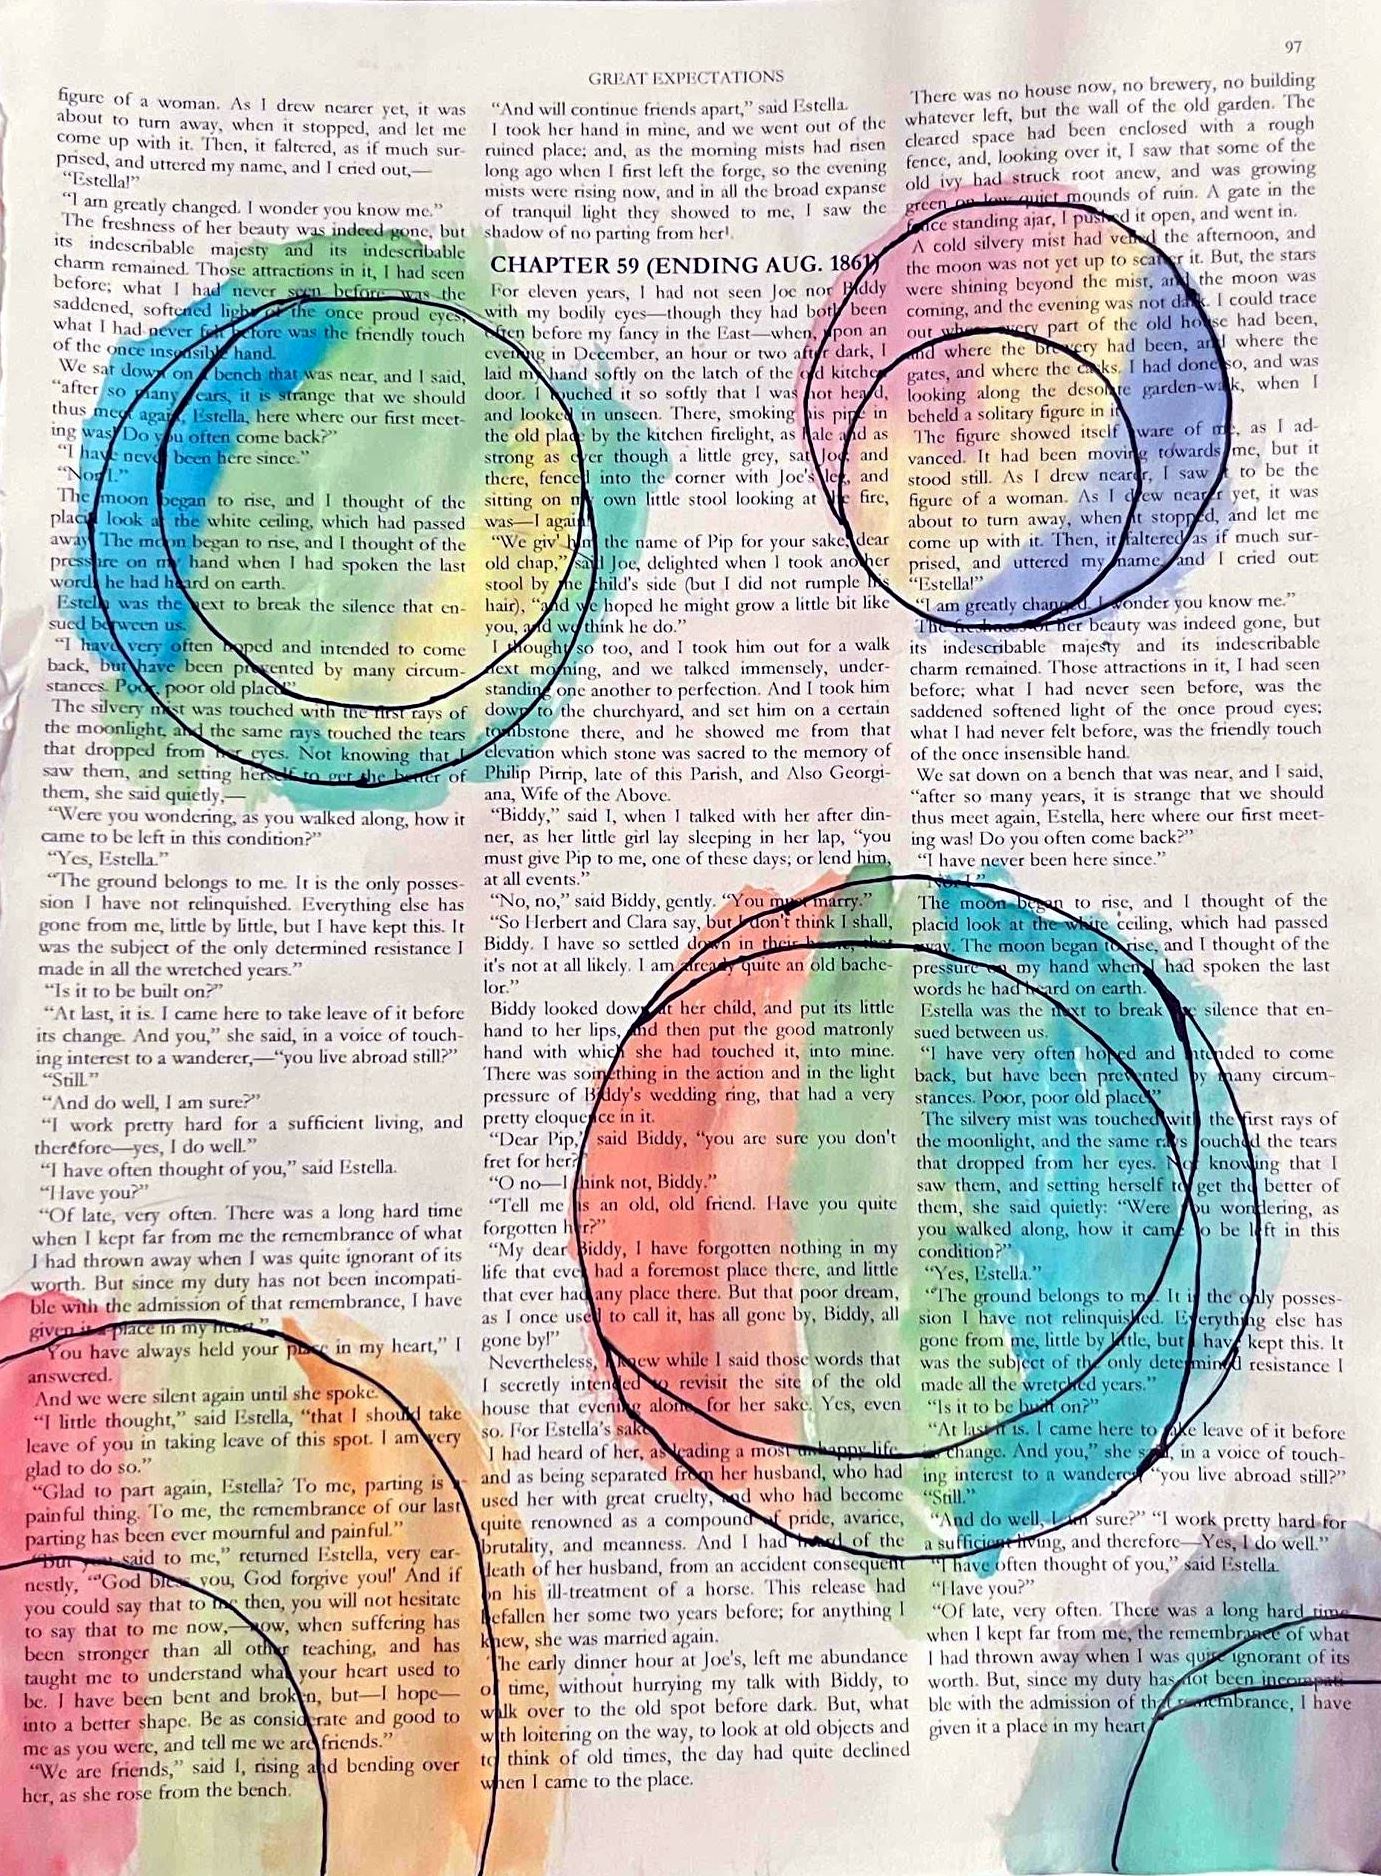 97
GREAT EXPECTATIONS
figure of a woman. As I drew nearer yet, it was
about to turn away, when it stopped, and let me
come up with it. Then, it faltered, as if much sur-
prised, and uttered my name, and I cried out,—
“Estella!”
“I am greatly changed. I wonder you know me.”
The freshness of her beauty was indeed gone, but
its indescribable majesty and its indescribable
charm remained. Those attractions in it, I had seen
before; what I had never seen before was the
saddened, softened light of the once proud eyes;
what I had never felt before was the friendly touch
of the once insensible hand.
We sat down on a bench that was near, and I said,
“after so many years, it is strange that we should
thus meet again, Estella, here where our first meet-
ing was! Do you often come back?”
“I have never been here since.”
“Nor I.”
The moon began to rise, and I thought of the
placid look at the white ceiling, which had passed
away. The moon began to rise, and I thought of the
pressure on my hand when I had spoken the last
words he had heard on earth.
Estella was the next to break the silence that en-
sued between us.
“I have very often hoped and intended to come
back, but have been prevented by many circum-
stances. Poor, poor old place!”
The silvery mist was touched with the first rays of
the moonlight, and the same rays touched the tears
that dropped from her eyes. Not knowing that I
saw them, and setting herself to get the better of
them, she said quietly,—
“Were you wondering, as you walked along, how it
came to be left in this condition?”
“Yes, Estella.”
“The ground belongs to me. It is the only posses-
sion I have not relinquished. Everything else has
gone from me, little by little, but I have kept this. It
was the subject of the only determined resistance I
made in all the wretched years.”
“Is it to be built on?”
“At last, it is. I came here to take leave of it before
its change. And you,” she said, in a voice of touch-
ing interest to a wanderer,—“you live abroad still?”
“Still.”
“And do well, I am sure?”
“I work pretty hard for a sufficient living, and
therefore—yes, I do well.”
“I have often thought of you,” said Estella.
“Have you?”
“Of late, very often. There was a long hard time
when I kept far from me the remembrance of what
I had thrown away when I was quite ignorant of its
worth. But since my duty has not been incompati-
ble with the admission of that remembrance, I have
given it a place in my heart.”
“You have always held your place in my heart,” I
answered.
And we were silent again until she spoke.
“I little thought,” said Estella, “that I should take
leave of you in taking leave of this spot. I am very
glad to do so.”
“Glad to part again, Estella? To me, parting is a
painful thing. To me, the remembrance of our last
parting has been ever mournful and painful.”
“But you said to me,” returned Estella, very ear-
nestly, “‘God bless you, God forgive you!’ And if
you could say that to me then, you will not hesitate
to say that to me now,—now, when suffering has
been stronger than all other teaching, and has
taught me to understand what your heart used to
be. I have been bent and broken, but—I hope—
into a better shape. Be as considerate and good to
me as you were, and tell me we are friends.”
“We are friends,” said I, rising and bending over
her, as she rose from the bench.
“And will continue friends apart,” said Estella.
I took her hand in mine, and we went out of the
ruined place; and, as the morning mists had risen
long ago when I first left the forge, so the evening
mists were rising now, and in all the broad expanse
of tranquil light they showed to me, I saw the
shadow of no parting from her¹.
CHAPTER 59 (ENDING AUG. 1861)
For eleven years, I had not seen Joe nor Biddy
with my bodily eyes—though they had both been
often before my fancy in the East—when, upon an
evening in December, an hour or two after dark, I
laid my hand softly on the latch of the old kitchen
door. I touched it so softly that I was not heard,
and looked in unseen. There, smoking his pipe in
the old place by the kitchen firelight, as hale and as
strong as ever though a little grey, sat Joe; and
there, fenced into the corner with Joe's leg, and
sitting on my own little stool looking at the fire,
was—I again!
“We giv' him the name of Pip for your sake, dear
old chap,” said Joe, delighted when I took another
stool by the child's side (but I did not rumple his
hair), “and we hoped he might grow a little bit like
you, and we think he do.”
I thought so too, and I took him out for a walk
next morning, and we talked immensely, under-
standing one another to perfection. And I took him
down to the churchyard, and set him on a certain
tombstone there, and he showed me from that
elevation which stone was sacred to the memory of
Philip Pirrip, late of this Parish, and Also Georgi-
ana, Wife of the Above.
“Biddy,” said I, when I talked with her after din-
ner, as her little girl lay sleeping in her lap, “you
must give Pip to me, one of these days; or lend him,
at all events.”
“No, no,” said Biddy, gently. “You must marry.”
“So Herbert and Clara say, but I don't think I shall,
Biddy. I have so settled down in their home, that
it's not at all likely. I am already quite an old bache-
lor.”
Biddy looked down at her child, and put its little
hand to her lips, and then put the good matronly
hand with which she had touched it, into mine.
There was something in the action and in the light
pressure of Biddy's wedding ring, that had a very
pretty eloquence in it.
“Dear Pip,” said Biddy, “you are sure you don't
fret for her?”
“O no—I think not, Biddy.”
“Tell me as an old, old friend. Have you quite
forgotten her?”
“My dear Biddy, I have forgotten nothing in my
life that ever had a foremost place there, and little
that ever had any place there. But that poor dream,
as I once used to call it, has all gone by, Biddy, all
gone by!”
Nevertheless, I knew while I said those words that
I secretly intended to revisit the site of the old
house that evening alone, for her sake. Yes, even
so. For Estella's sake.
I had heard of her, as leading a most unhappy life,
and as being separated from her husband, who had
used her with great cruelty, and who had become
quite renowned as a compound of pride, avarice,
brutality, and meanness. And I had heard of the
death of her husband, from an accident consequent
on his ill-treatment of a horse. This release had
befallen her some two years before; for anything I
knew, she was married again.
The early dinner hour at Joe's, left me abundance
of time, without hurrying my talk with Biddy, to
walk over to the old spot before dark. But, what
with loitering on the way, to look at old objects and
to think of old times, the day had quite declined
when I came to the place.
There was no house now, no brewery, no building
whatever left, but the wall of the old garden. The
cleared space had been enclosed with a rough
fence, and, looking over it, I saw that some of the
old ivy had struck root anew, and was growing
green on low quiet mounds of ruin. A gate in the
fence standing ajar, I pushed it open, and went in.
A cold silvery mist had veiled the afternoon, and
the moon was not yet up to scatter it. But, the stars
were shining beyond the mist, and the moon was
coming, and the evening was not dark. I could trace
out where every part of the old house had been,
and where the brewery had been, and where the
gates, and where the casks. I had done so, and was
looking along the desolate garden-walk, when I
beheld a solitary figure in it.
The figure showed itself aware of me, as I ad-
vanced. It had been moving towards me, but it
stood still. As I drew nearer, I saw it to be the
figure of a woman. As I drew nearer yet, it was
about to turn away, when it stopped, and let me
come up with it. Then, it faltered as if much sur-
prised, and uttered my name, and I cried out:
“Estella!”
“I am greatly changed. I wonder you know me.”
The freshness of her beauty was indeed gone, but
its indescribable majesty and its indescribable
charm remained. Those attractions in it, I had seen
before; what I had never seen before, was the
saddened softened light of the once proud eyes;
what I had never felt before, was the friendly touch
of the once insensible hand.
We sat down on a bench that was near, and I said,
“after so many years, it is strange that we should
thus meet again, Estella, here where our first meet-
ing was! Do you often come back?”
“I have never been here since.”
“Nor I.”
The moon began to rise, and I thought of the
placid look at the white ceiling, which had passed
away. The moon began to rise, and I thought of the
pressure on my hand when I had spoken the last
words he had heard on earth.
Estella was the next to break the silence that en-
sued between us.
“I have very often hoped and intended to come
back, but have been prevented by many circum-
stances. Poor, poor old place!”
The silvery mist was touched with the first rays of
the moonlight, and the same rays touched the tears
that dropped from her eyes. Not knowing that I
saw them, and setting herself to get the better of
them, she said quietly: “Were you wondering, as
you walked along, how it came to be left in this
condition?”
“Yes, Estella.”
“The ground belongs to me. It is the only posses-
sion I have not relinquished. Everything else has
gone from me, little by little, but I have kept this. It
was the subject of the only determined resistance I
made all the wretched years.”
“Is it to be built on?”
“At last it is. I came here to take leave of it before
its change. And you,” she said, in a voice of touch-
ing interest to a wanderer, “you live abroad still?”
“Still.”
“And do well, I am sure?” “I work pretty hard for
a sufficient living, and therefore—Yes, I do well.”
“I have often thought of you,” said Estella.
“Have you?”
“Of late, very often. There was a long hard time
when I kept far from me, the remembrance of what
I had thrown away when I was quite ignorant of its
worth. But, since my duty has not been incompati-
ble with the admission of that remembrance, I have
given it a place in my heart